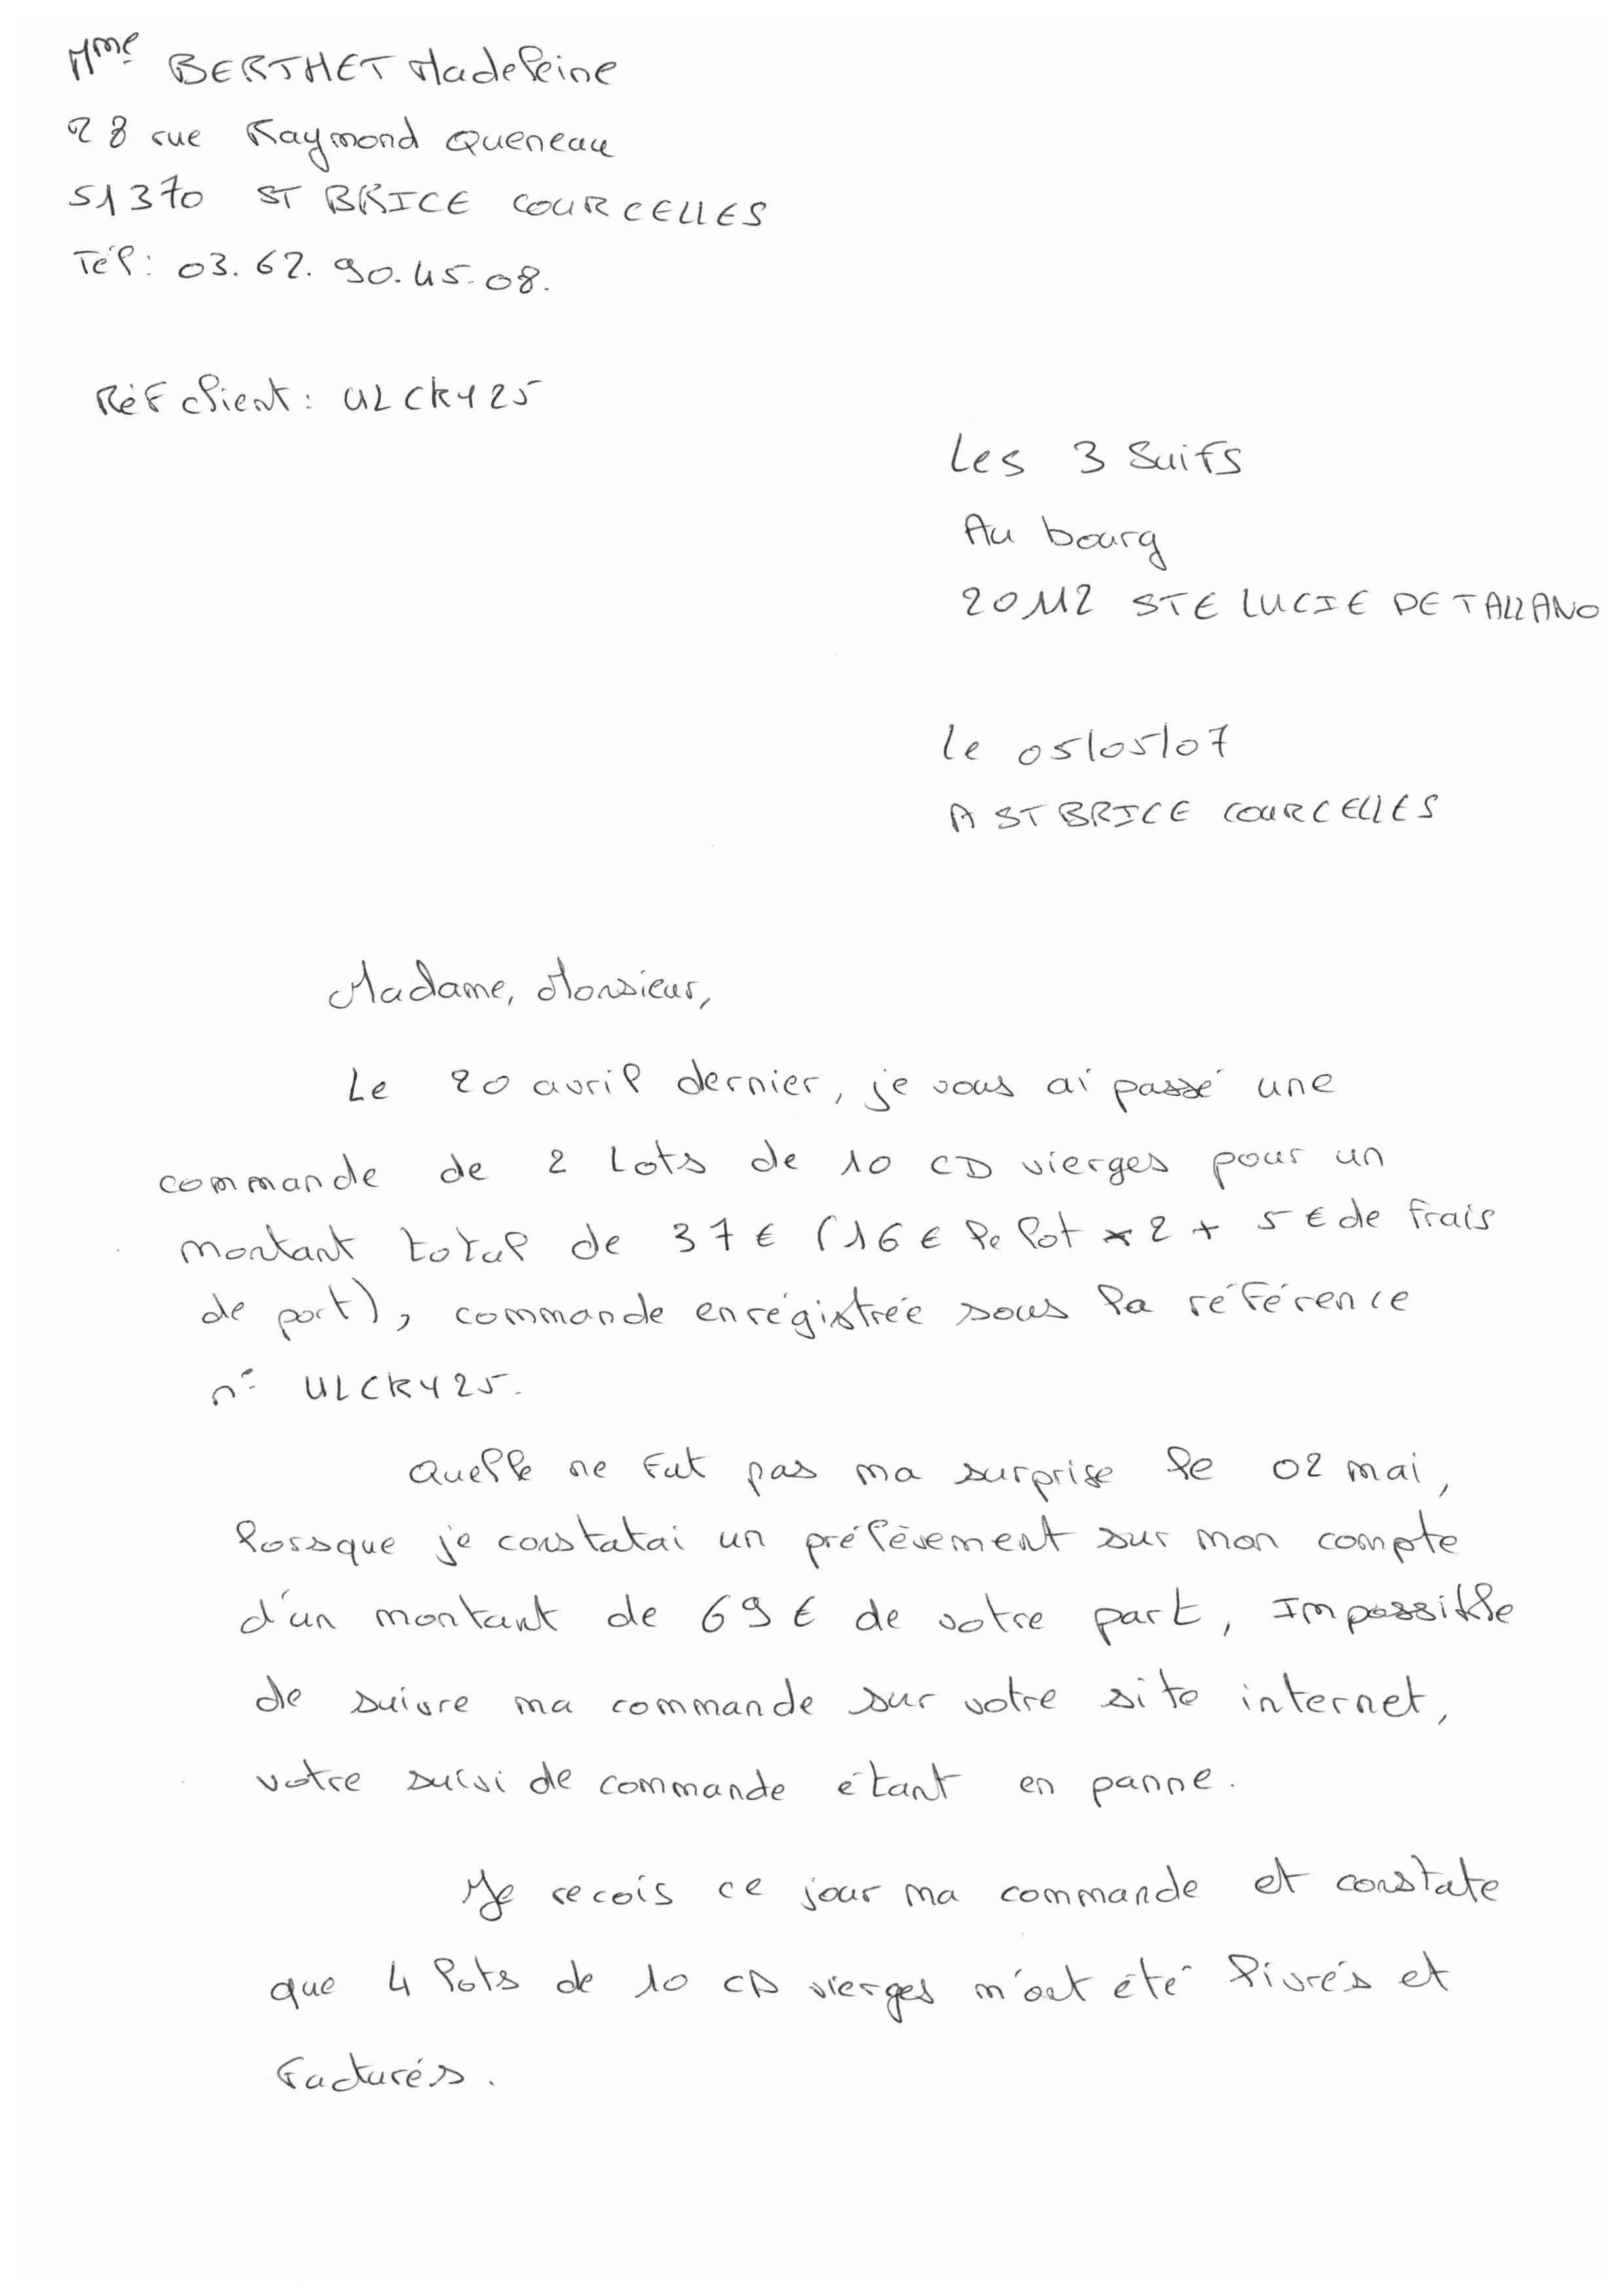 Mme BERTHET Madeleine
28 rue Raymond Queneau
51370 ST BRICE COURCELLES
Tél: 03.62.90.45.08.
Réf client: ULCKY25
Les 3 Suifs
Au bourg
20112 STE LUCIE DE TALLANO
le 05/05/07
A ST BRICE COURCELLES
Madame, Monsieur,
Le 20 avril dernier, je vous ai passé une
commande de 2 lots de 10 CD vierges pour un
montant total de 37€ (16€ le lot * 2 + 5€ de frais
de port), commande enrégistrée sous la référence
n° ULCKY25.
Quelle ne fut pas ma surprise le 02 mai,
lorsque je constatai un prélèvement sur mon compte
d'un montant de 69€ de votre part, Impossible
de suivre ma commande sur votre site internet,
votre suivi de commande étant en panne.
Je recois ce jour ma commande et constate
que 4 lots de 10 CD vierges m'ont été livrés et
facturés.